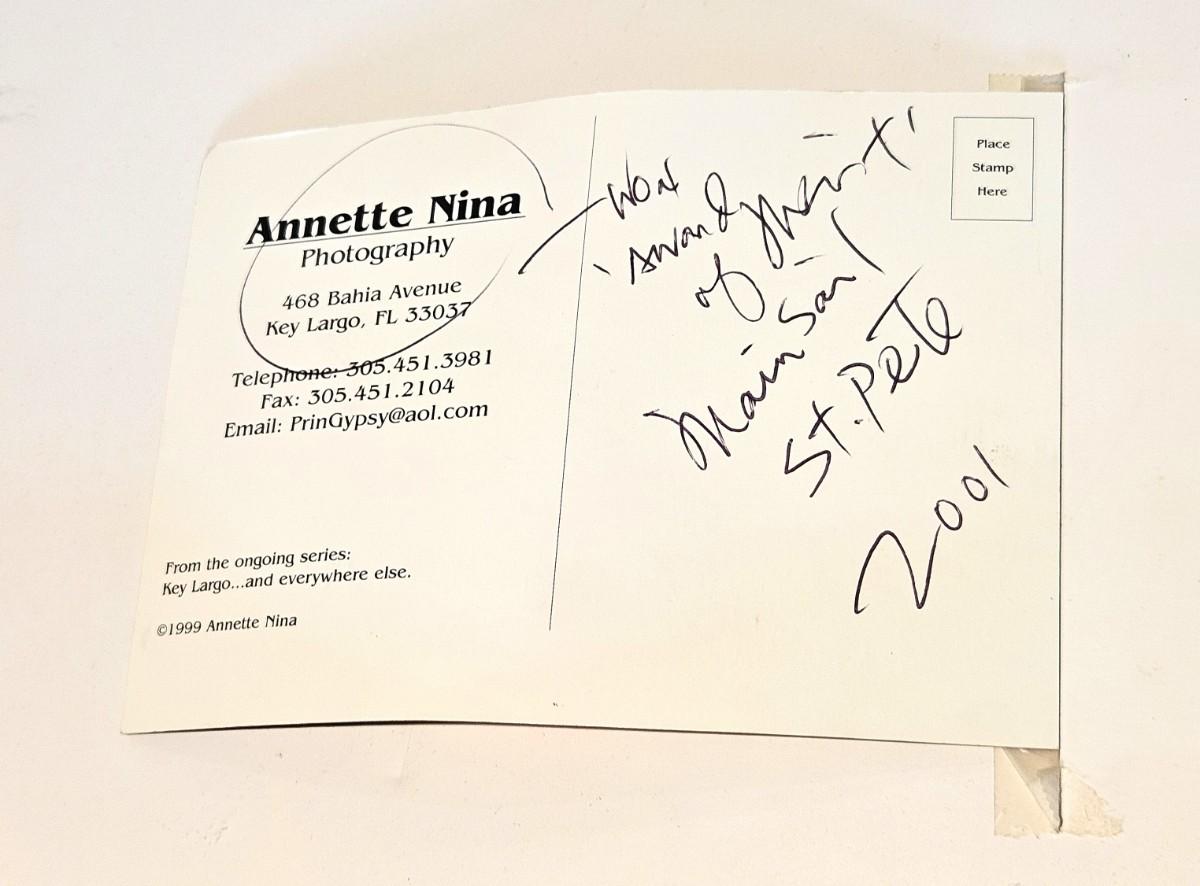 Annette Nina
Photography
468 Bahia Avenue
Key Largo, FL 33037
Telephone: 305.451.3981
Fax: 305.451.2104
Email: PrinGypsy@aol.com
From the ongoing series:
Key Largo...and everywhere else.
©1999 Annette Nina
Won
'Award
of Merit'
Mainsail
St. Pete
2001
Place
Stamp
Here